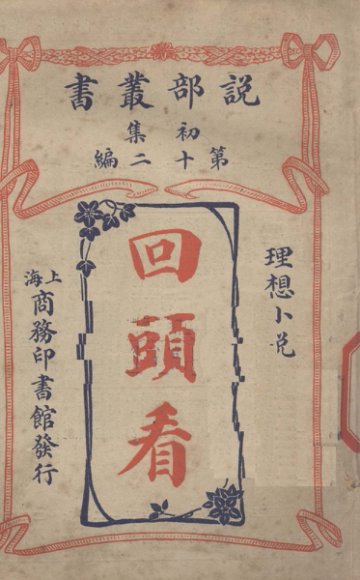 説部叢書
初集
第十二編
理想小説
回頭看
上海
商務印書館發行